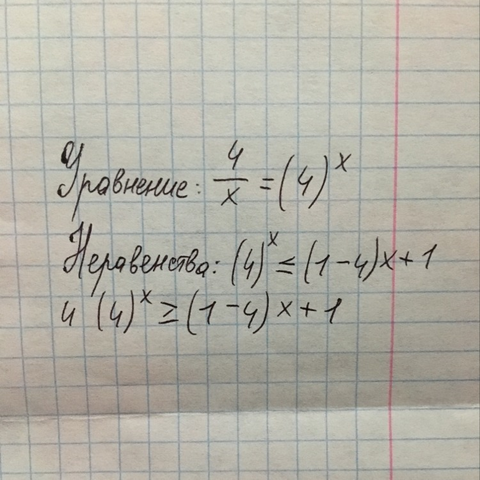 Уравнение: 4/x = (4)^x
Неравенства: (4)^x ≤ (1-4)x+1
и (4)^x ≥ (1-4)x+1